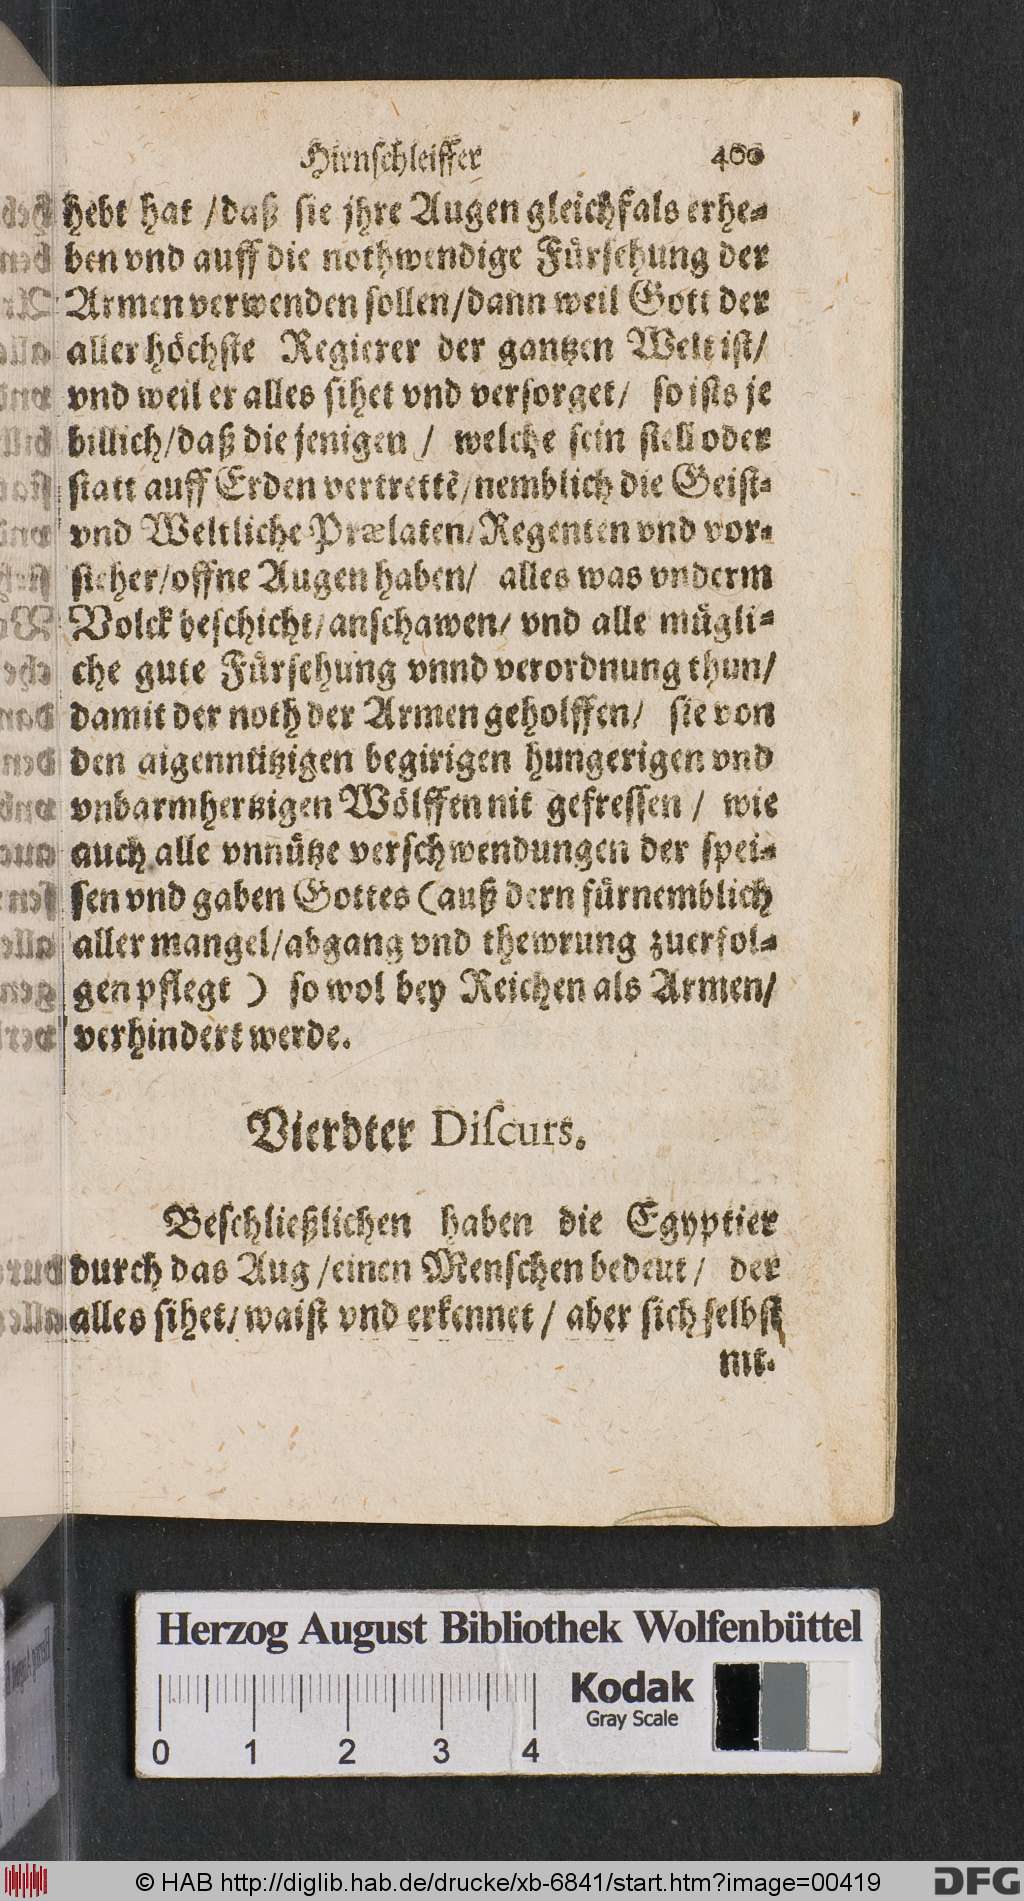 Hirnſchleiffer 400
hebt hat / daß sie jhre Augen gleichfals erhe-
ben vnd auff die nothwendige Fürsehung der
Armen verwenden sollen / dann weil Gott der
aller höchste Regierer der gantzen Welt ist /
vnd weil er alles sihet vnd versorget / so ists je
billich / daß die jenigen / welche sein stell oder
statt auff Erden vertrettē / nemblich die Geist-
vnd Weltliche Prælaten / Regenten vnd vor-
steher / offne Augen haben / alles was vnderm
Volck beschicht / anschawen / vnd alle mügli-
che gute Fürsehung vnnd verordnung thun /
damit der noth der Armen geholffen / sie von
den aigennützigen begirigen hungerigen vnd
vnbarmhertzigen Wölffen nit gefressen / wie
auch alle vnnütze verschwendungen der spei-
sen vnd gaben Gottes (auß dern fürnemblich
aller mangel / abgang vnd thewrung zuerfol-
gen pflegt ) so wol bey Reichen als Armen /
verhindert werde.
Vierdter Diſcurs.
Beschließlichen haben die Egyptier
durch das Aug / einen Menschen bedeut / der
alles sihet / waist vnd erkennet / aber sich selbst
nit.
Herzog August Bibliothek Wolfenbüttel
Kodak
Gray Scale
0 1 2 3 4
© HAB http://diglib.hab.de/drucke/xb-6841/start.htm?image=00419
DFG